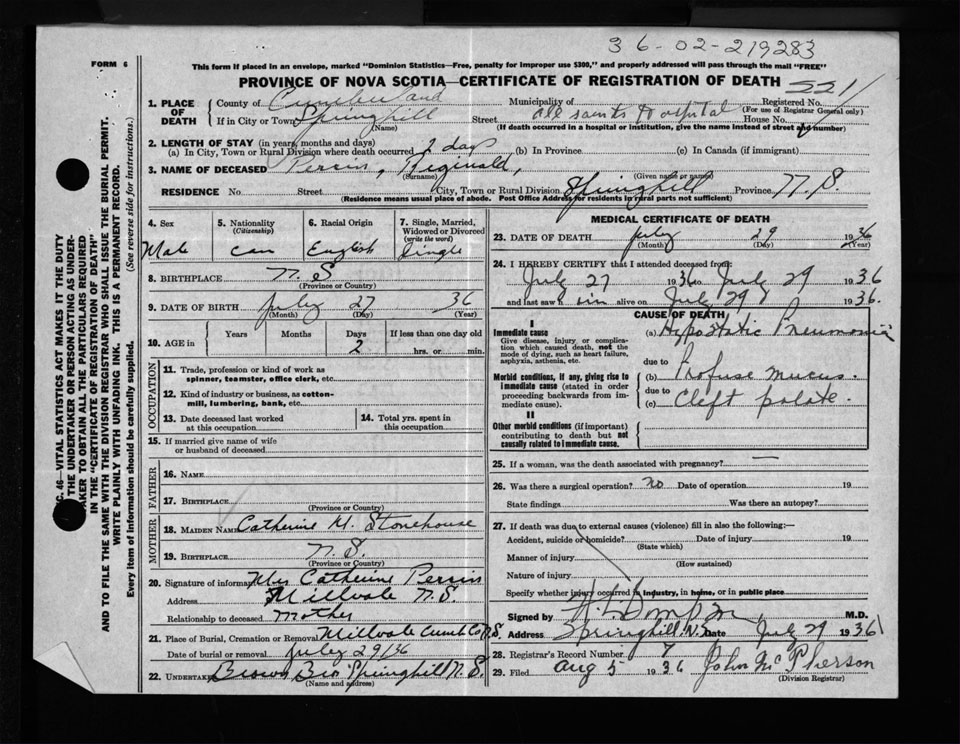 36-02-219283
FORM 6
This form if placed in an envelope, marked "Dominion Statistics—Free, penalty for improper use $300," and properly addressed will pass through the mail "FREE"
PROVINCE OF NOVA SCOTIA—CERTIFICATE OF REGISTRATION OF DEATH 221
1. PLACE OF DEATH { County of Cumberland Municipality of Registered No. (For use of Registrar General only)
If in City or Town Springhill (Name) Street All Saints Hospital House No.
(If death occurred in a hospital or institution, give the name instead of street and number)
2. LENGTH OF STAY (in years, months and days)
(a) In City, Town or Rural Division where death occurred 2 days (b) In Province (c) In Canada (if immigrant)
3. NAME OF DECEASED Perrin, Reginald,
(Surname) (Given name or names)
RESIDENCE No. Street City, Town or Rural Division Springhill Province N.S.
(Residence means usual place of abode. Post Office Address for residents in rural parts not sufficient)
4. Sex 5. Nationality (Citizenship) 6. Racial Origin 7. Single, Married, Widowed or Divorced (write the word)
Male Can English Single
8. BIRTHPLACE N.S
(Province or Country)
9. DATE OF BIRTH July 27 36
(Month) (Day) (Year)
10. AGE in { Years Months Days If less than one day old
2 hrs. or min.
OCCUPATION
11. Trade, profession or kind of work as spinner, teamster, office clerk, etc.
12. Kind of industry or business, as cotton-mill, lumbering, bank, etc.
13. Date deceased last worked at this occupation 14. Total yrs. spent in this occupation
15. If married give name of wife or husband of deceased
FATHER
16. NAME
17. BIRTHPLACE
(Province or Country)
MOTHER
18. MAIDEN NAME Catherine M. Stonehouse
19. BIRTHPLACE N.S.
(Province or Country)
20. Signature of informant Mrs Catherine Perrin
Address Millvale N.S.
Relationship to deceased Mother
21. Place of Burial, Cremation or Removal Millvale Cumb Co N.S.
Date of burial or removal July 29/36
22. UNDERTAKER Brown Bro Springhill N.S.
(Name and address)
MEDICAL CERTIFICATE OF DEATH
23. DATE OF DEATH July 29 1936
(Month) (Day) (Year)
24. I HEREBY CERTIFY that I attended deceased from:
July 27 1936 to July 29 1936
and last saw him alive on July 29 1936.
CAUSE OF DEATH
I
Immediate cause
Give disease, injury or complication which caused death, not the mode of dying, such as heart failure, asphyxia, asthenia, etc.
(a) Hypostatic Pneumonia
due to
Morbid conditions, if any, giving rise to immediate cause (stated in order proceeding backwards from immediate cause).
(b) Profuse mucus.
due to
(c) Cleft palate.
II
Other morbid conditions (if important) contributing to death but not causally related to immediate cause.
25. If a woman, was the death associated with pregnancy? —
26. Was there a surgical operation? no Date of operation 19
State findings Was there an autopsy?
27. If death was due to external causes (violence) fill in also the following:—
Accident, suicide or homicide? Date of injury 19
(State which)
Manner of injury
(How sustained)
Nature of injury
Specify whether injury occurred in industry, in home, or in public place
Signed by M.D.
Address Springhill. N.S. Date July 29 1936
28. Registrar's Record Number 7
29. Filed Aug 5 1936 John McPherson
(Division Registrar)
C. 46—VITAL STATISTICS ACT MAKES IT THE DUTY
THE UNDERTAKER OR PERSON ACTING AS UNDER-
AKER TO OBTAIN ALL THE PARTICULARS REQUIRED
IN THE "CERTIFICATE OF REGISTRATION OF DEATH"
AND TO FILE THE SAME WITH THE DIVISION REGISTRAR WHO SHALL ISSUE THE BURIAL PERMIT.
WRITE PLAINLY WITH UNFADING INK. THIS IS A PERMANENT RECORD.
Every item of information should be carefully supplied. (See reverse side for instructions.)